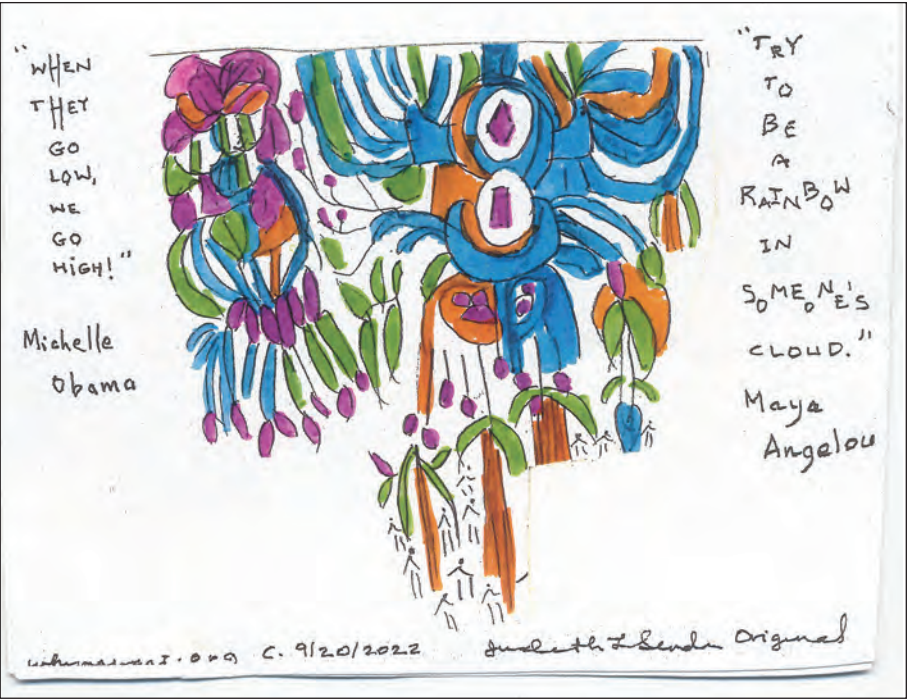 "WHEN
THEY
GO
LOW,
WE
GO
HIGH!"
Michelle
Obama
"TRY
TO
BE
A
RAINBOW
IN
SOMEONE'S
CLOUD."
Maya
Angelou
C. 9/20/2022
Original